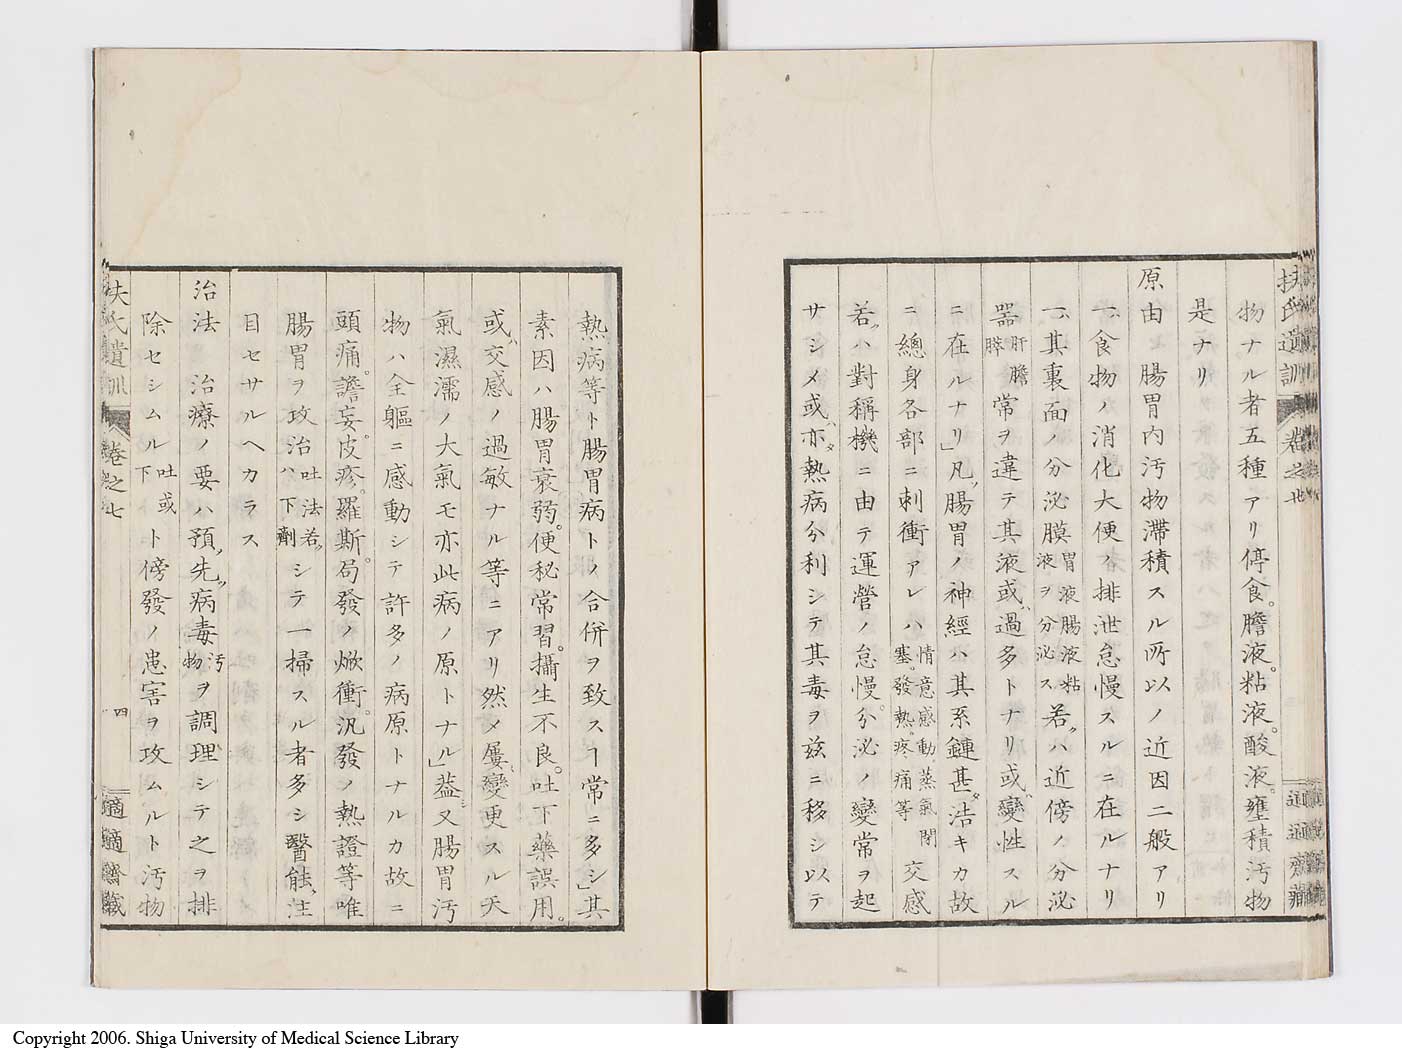 扶氏遺訓 卷之廿
適適齋藏
物ナル者五種アリ停食。膽液。粘液。酸液。壅積汚物
是ナリ
原由 腸胃内汚物滯積スル所以ノ近因二般アリ
一、食物ノ消化大便ノ排泄怠慢スルニ在ルナリ
一、其裏面ノ分泌膜胃液腸液粘液ヲ分泌ス若クハ近傍ノ分泌
器肝膽膵常ヲ違テ其液或過多トナリ或變性スル
ニ在ルナリ」凡腸胃ノ神經ハ其系鏈甚浩キカ故
ニ總身各部ニ刺衝アレハ情意感動。蒸氣閉塞。發熱。疼痛等交感
若クハ對稱機ニ由テ運營ノ怠慢。分泌ノ變常ヲ起
サシメ或亦熱病分利シテ其毒ヲ茲ニ移シ以テ
熱病等ト腸胃病トノ合併ヲ致スヿ常ニ多シ」其
素因ハ腸胃衰弱。便秘常習。攝生不良。吐下藥誤用。
或交感ノ過敏ナル等ニアリ然メ屢變更スル天
氣濕濡ノ大氣モ亦此病ノ原トナル」蓋又腸胃汚
物ハ全軀ニ感動シテ許多ノ病原トナルカ故ニ
頭痛。譫妄。皮疹。羅斯。局發ノ焮衝。汎發ノ熱證等唯
腸胃ヲ攻治吐法若クハ下劑シテ一掃スル者多シ醫能注
目セサルヘカラス
治法 治療ノ要ハ預先病毒汚物ヲ調理シテ之ヲ排
除セシムル吐或下ト傍發ノ患害ヲ攻ムルト汚物
扶氏遺訓 卷之七
四
適適齋藏
Copyright 2006. Shiga University of Medical Science Library